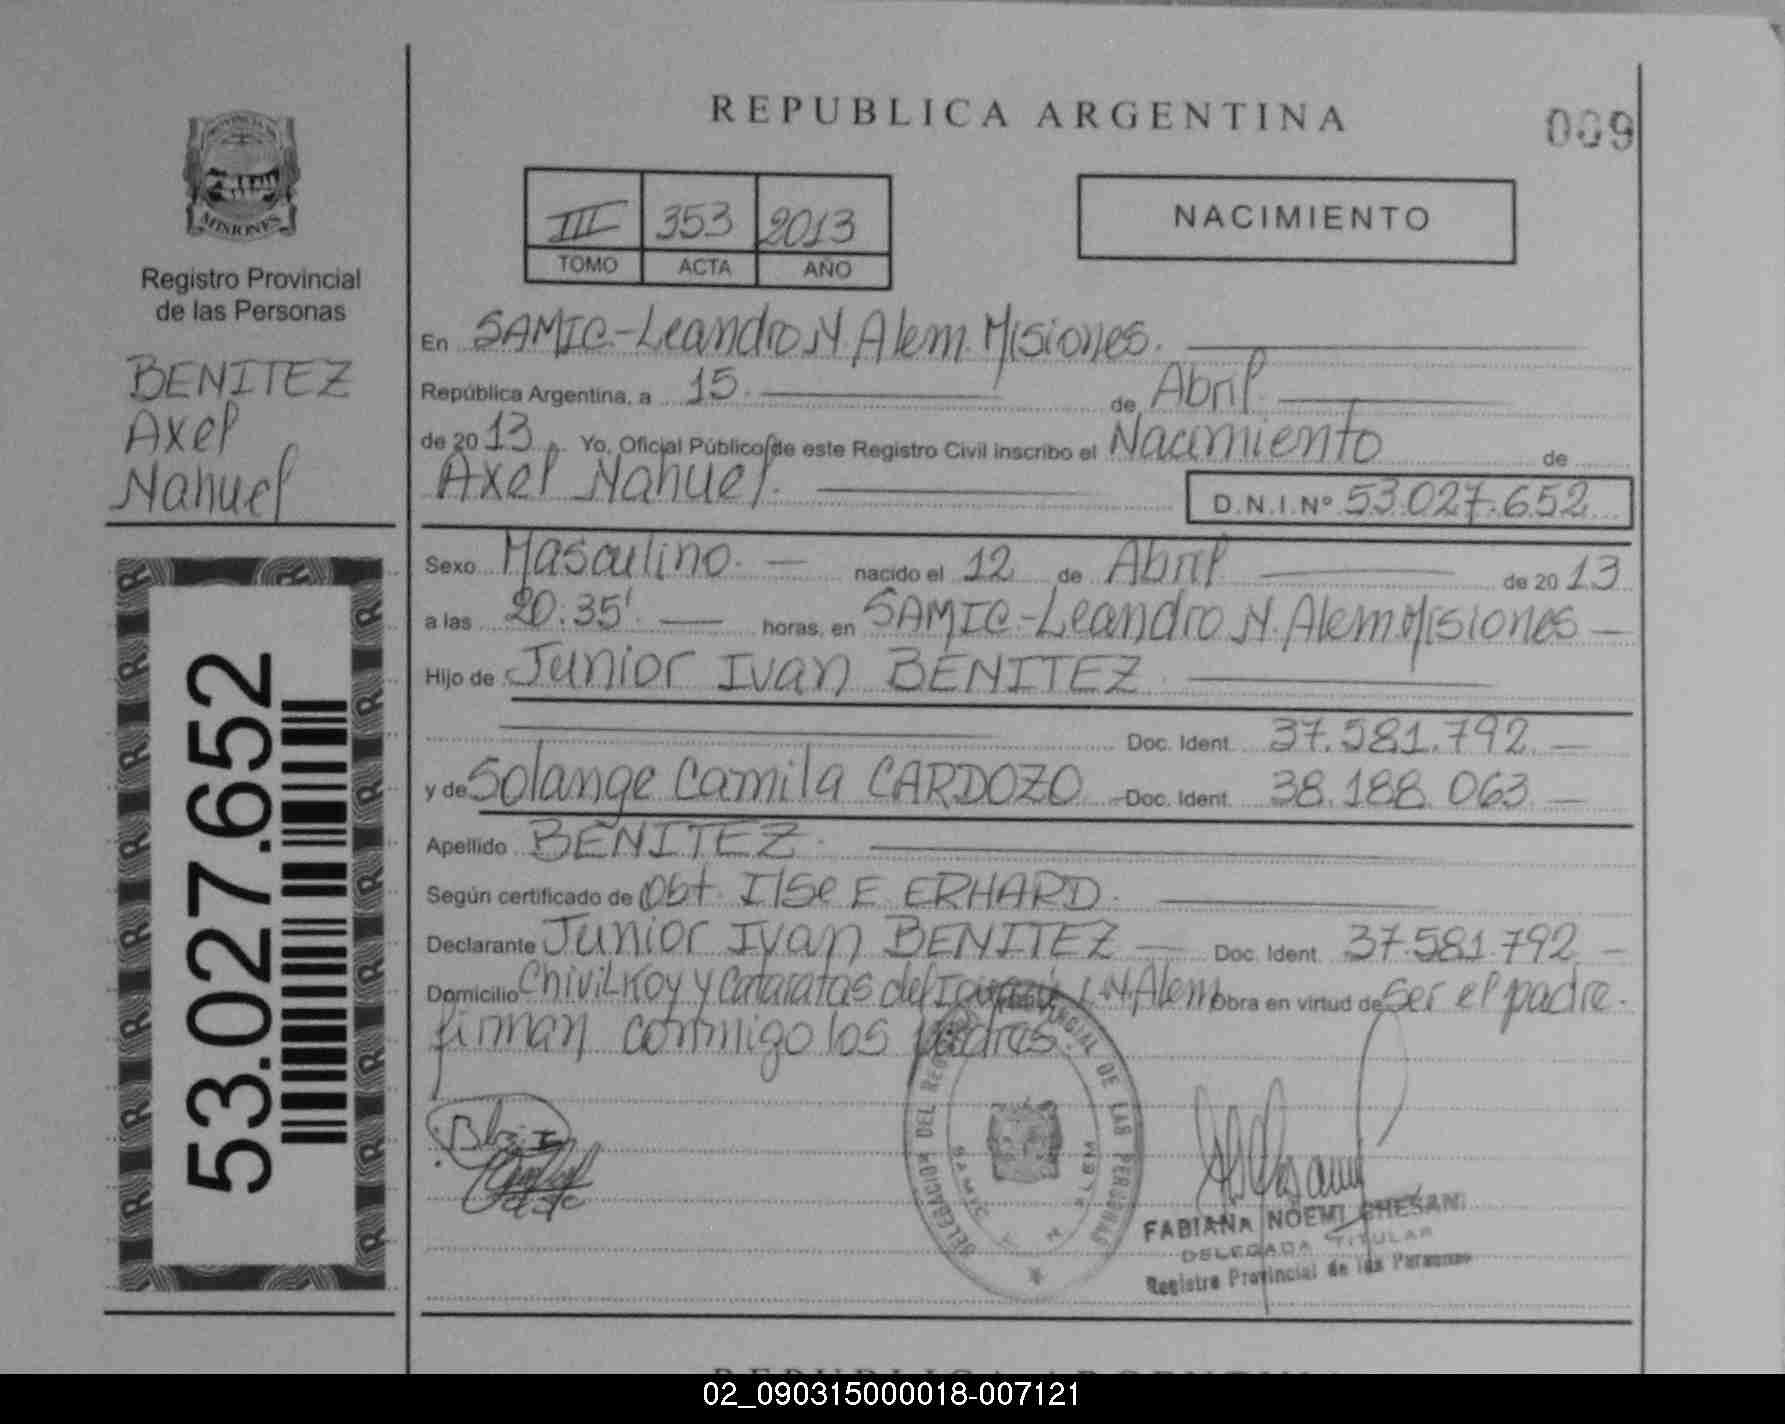 REPUBLICA ARGENTINA
009
PROVINCIA DE
MISIONES
Registro Provincial
de las Personas
BENITEZ
Axel
Nahuel
53.027.652
III 353 2013
TOMO ACTA AÑO
NACIMIENTO
En SAMIC-Leandro N. Alem. Misiones.
República Argentina, a 15. de Abril.
de 2013. Yo, Oficial Público de este Registro Civil inscribo el Nacimiento de
Axel Nahuel. D.N.I.Nº 53.027.652
Sexo Masculino. nacido el 12 de Abril de 2013
a las 20:35'. horas, en SAMIC-Leandro N. Alem Misiones
Hijo de Junior Ivan BENITEZ
Doc. Ident. 37.581.792
y de Solange Camila CARDOZO Doc. Ident. 38.188.063
Apellido BENITEZ.
Según certificado de Obt. Ilse E. ERHARD.
Declarante Junior Ivan BENITEZ Doc. Ident. 37.581.792
Domicilio Chivilkoy y Cataratas del Iguazú L.N.Alem Obra en virtud de ser el padre.
firman conmigo los padres.
DELEGACION DEL REGISTRO PROVINCIAL DE LAS PERSONAS
SAMIC L. N. ALEM
FABIANA NOEMI CHESANI
DELEGADA TITULAR
Registro Provincial de las Personas
REPUBLICA ARGENTINA
02_090315000018-007121